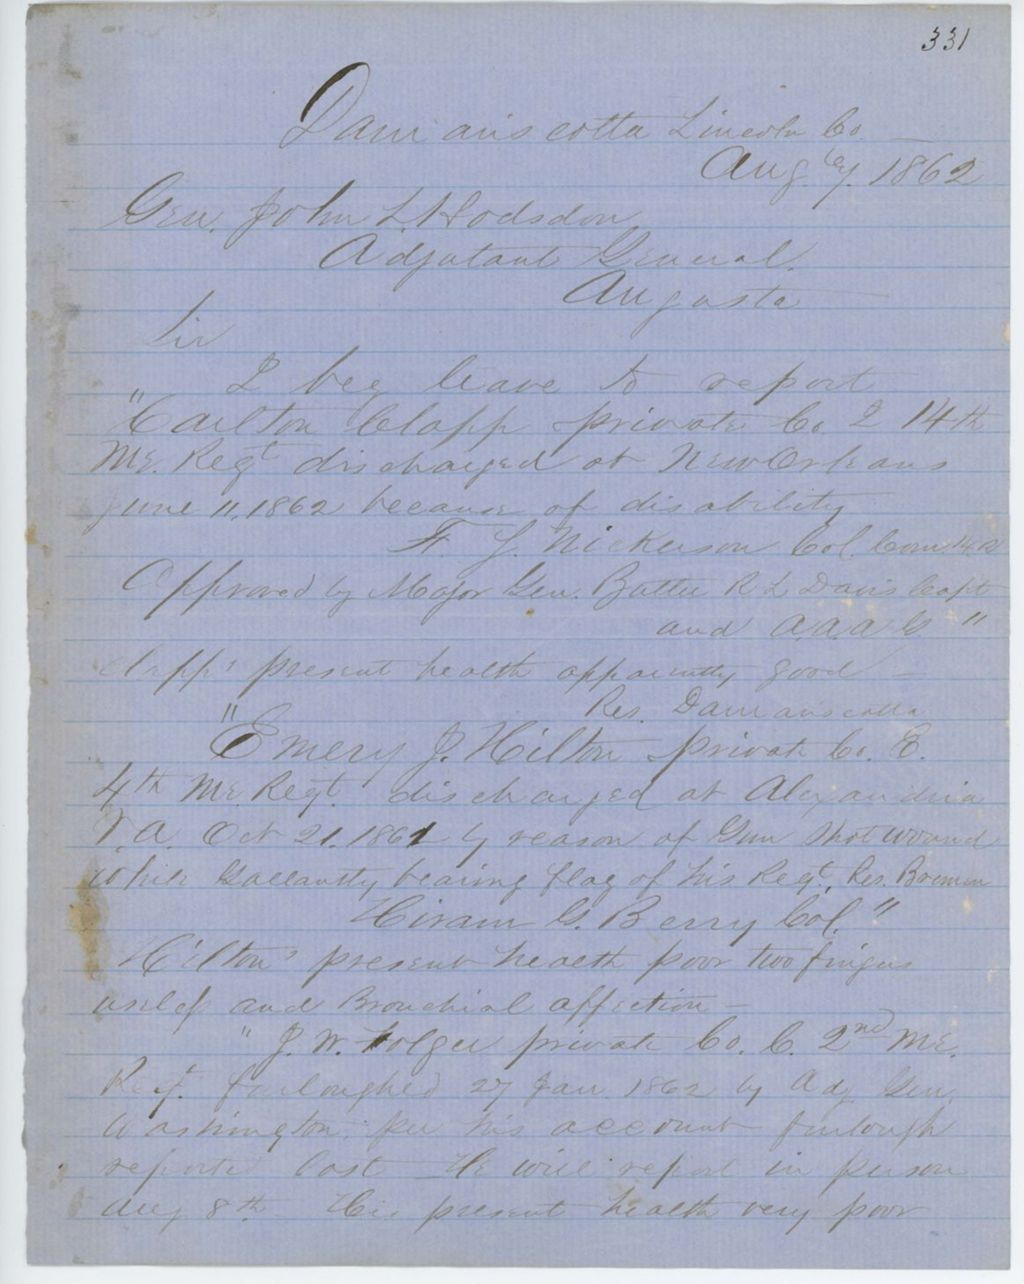 331
Damariscotta Lincoln Co.
Aug. 1862
Gen. John L. Hodsdon
Adjutant General.
Augusta
Sir
I beg leave to report
"Carlton Clapp private Co. I 14th
Me. Regt discharged at New Orleans
June 11, 1862 because of disability
F S. Nickerson Col. Com 14 R
Approved by Major Gen. Butler R L Davis Capt
and A A A G"
Clapp's present health apparently good –
Res. Damariscotta
"Emery J. Hilton private Co. E.
4th Me. Regt. discharged at Alexandria
V.A. Oct 21. 1861 by reason of Gun Shot wound
while Gallantly bearing flag of his Regt. Res. Bremen
Hiram G. Berry Col."
Hilton's present health poor two fingers
useless and Bronchial affection –
"J. W. Folger private Co. C. 2nd Me.
Regt. furloughed 27 Jan. 1862 by Adj. Gen.
Washington, per his account furlough
reported lost – He will report in person
Aug 8th – His present health very poor